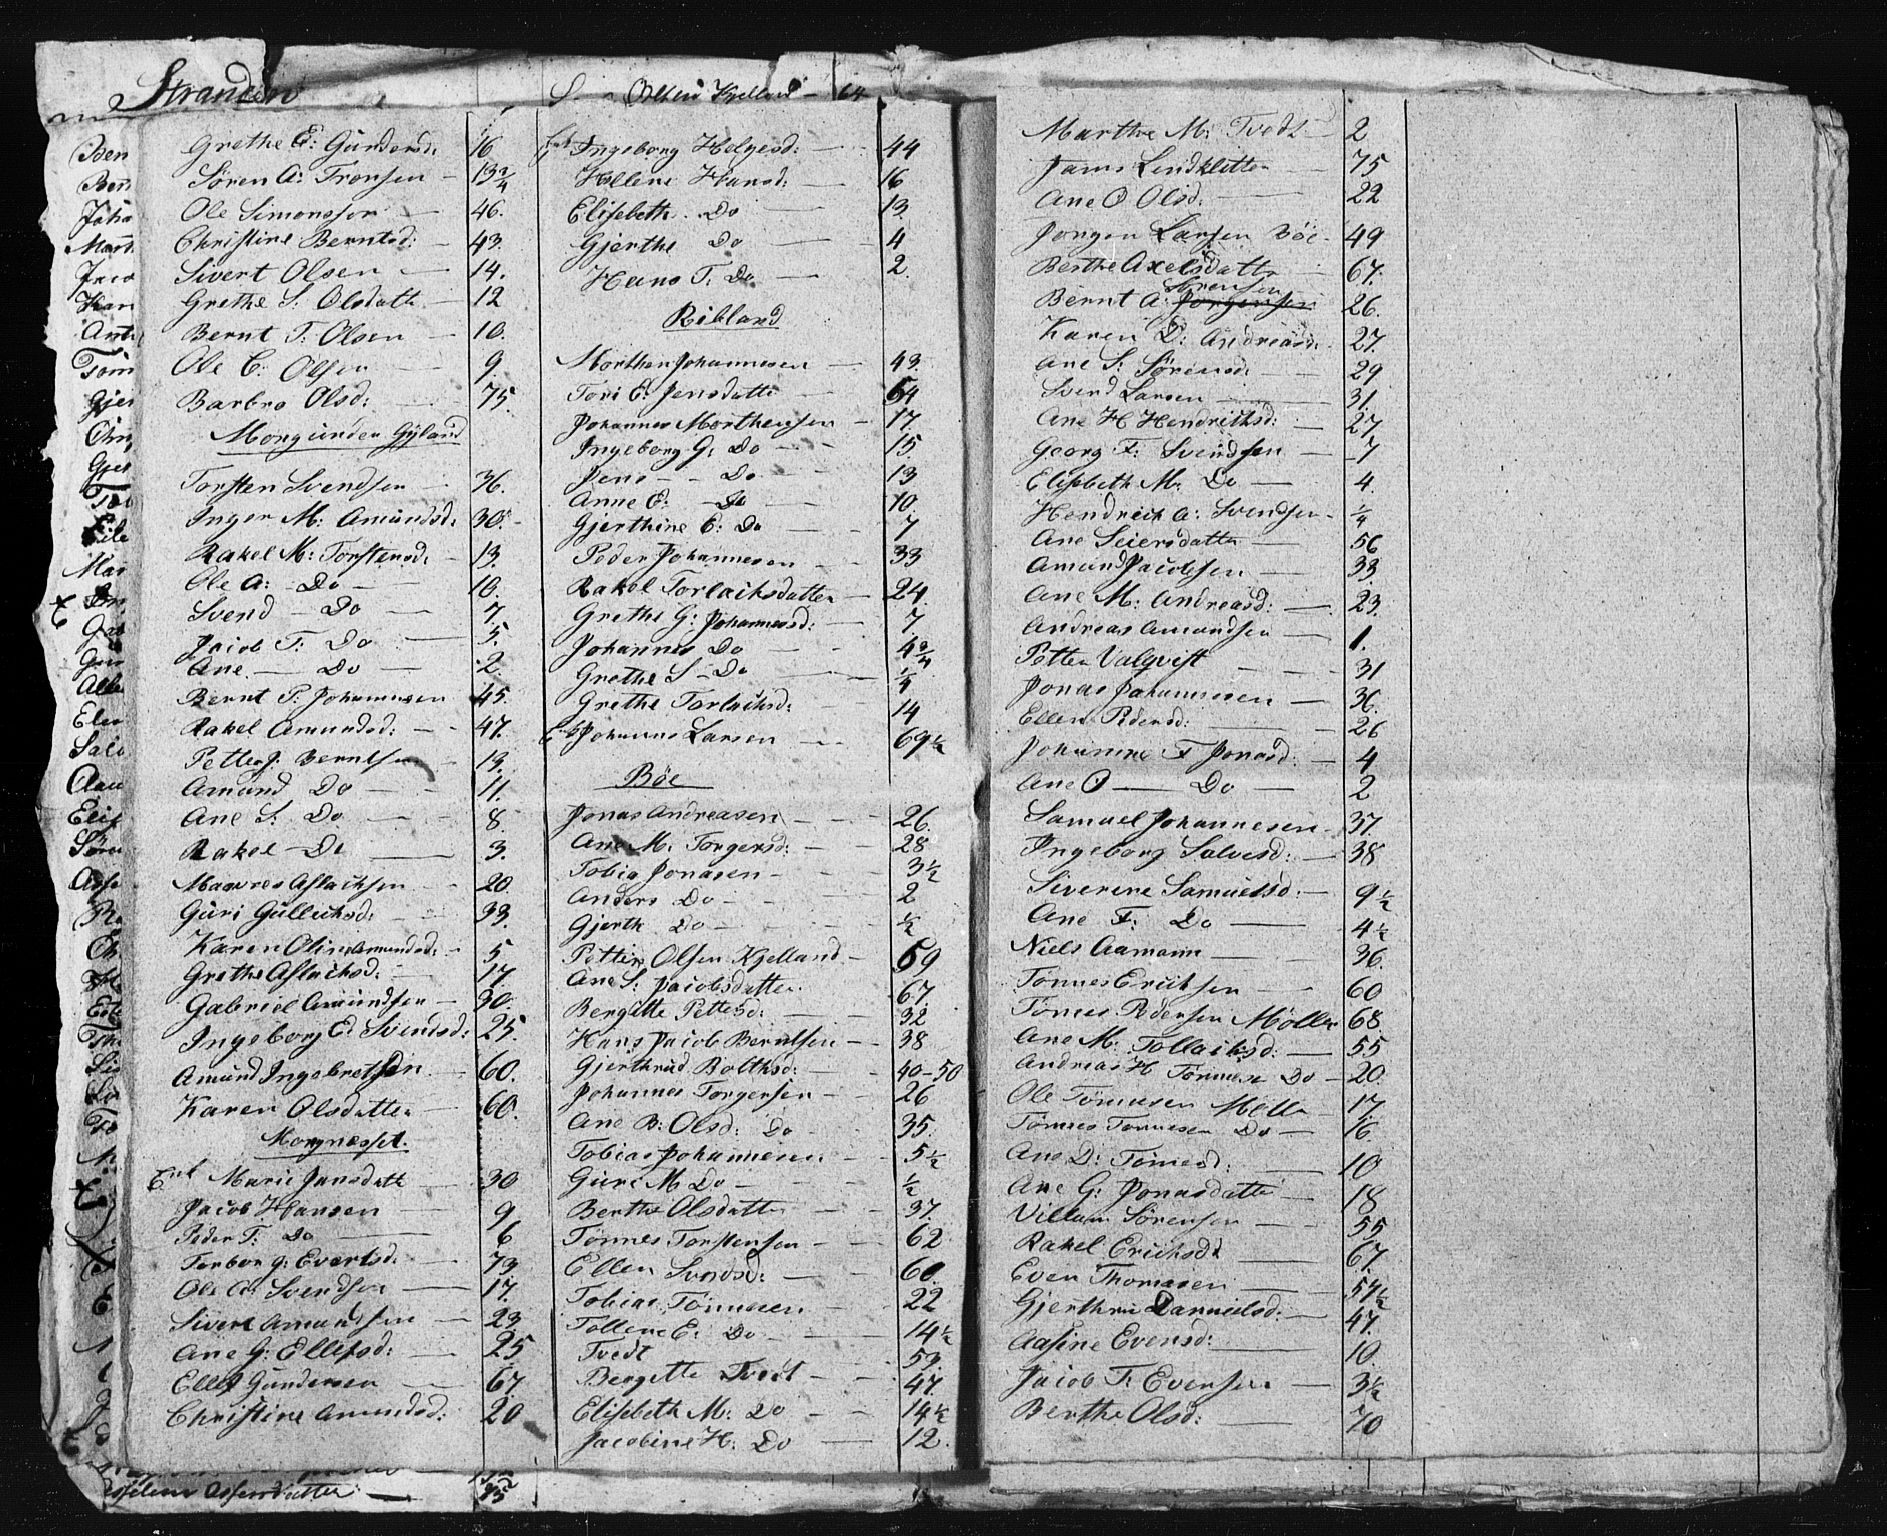 Stranden
S Kjelland 64
Grethe E: Gundersd: 16
Søren A: Tronsen 13 3/4
Ole Simonssen 46.
Christine Berntsd: 43.
Sivert Olsen 14.
Grethe S. Olsdatt 12
Bernt T: Olsen 10.
Ole C: Olsen 9.
Barbro Olsd: 75.
Morgunden Gyland
Torsten Svendsen 36.
Inger M: Amundsd: 30.
Rakel M: Torstensd: 13.
Ole A: Do 10.
Svend Do 7.
Jacob T: Do 5.
Ane Do 2
Bernt P: Johannesen 45.
Rakel Amundsd: 47.
Petter J. Berntsen 13.
Amund Do 11.
Ane S. Do 8.
Rakel Do 3.
Aslachsen 20.
Guri Gullichsd: 33.
Karen Olin Amundsd: 5
Grethe Aslachsd: 17.
Gabriel Amundsen 30.
Ingeborg E. Svendsd: 25.
Amund Ingebretsen 60.
Karen Olsdatter 60.
Morgnesset.
Enk Marie Jansdatt 30
Jacob Hansen 9
Peder T: Do 6
Torbor G: Evertsd: 73
Ole A: Svendsen 17.
Sivert Amundsen 23
Ane G: Ellefsd: 25
Ellef Gundersen 67
Christine Amundsd: 20
Enk Ingeborg Helgesd: 44
Hellene Hansd: 16
Elisebeth Do 13.
Gjerthe Do 4
Hans T: Do 2.
Ribland
Morthen Johannesen 43.
Tori E: Jensdatte 54
Johannes Morthensen 17.
Ingeborg G: Do 15.
Jens Do 13
Anne E: Do 10.
Gjerthine E: Do 7
Peder Johannesen 33
Rakel Torlachsdatter 24.
Grethe G: Johannesd: 7
Johannes Do 4 3/4
Grethe S. Do 1/4
Grethe Torlachsd: 14
Enk Johannes Larsen 69 1/2
Böe
Jonas Andreasen 26.
Ane M: Torgersd: 28
Tobia Jonasen 3 1/2
Anders Do 2
Gjerth Do 1/2
Petter Olsen Kjelland 69
Ane S: Jacobsdatter 67.
Bergitte Pettersd: 32
Hans Jacob Berntsen 38
Gjerthrud Bolthsd: 40-50
Johannes Torgersen 26
Ane B: Olsd: Do 35.
Tobias Johannesen 5 1/2
Guri M Do 1/2
Berthe Olsdatter 37.
Tönnes Torstensen 62
Ellen Svendsd: 60.
Tobias Tönnesen 22
Tolline E: Do 14 1/2
Tvedt 53.
Bergitte Tvedt 47.
Elisebeth M: Do 14 1/2
Jacobine H: Do 12.
Marthe M: Tvedt 2
James Lindkletter 75
Ane O Olsd: 22
Jorgen Larsen Böe 49
Berthe Axelsdatter 67.
Sörensen
Bernt A: Jörgensen 26.
Karen D: Andreasd: 27.
Ane S: Sörensd: 29
Svend Larsen 31.
Ane H Hendrichsd: 27.
Georg F: Svendsen 7
Elisebeth M: Do 4.
Hendrich A: Svendsen 1/4
Ane Seiersdatter 56
Amund Jacobsen 33.
Ane M: Andreasd: 23.
Andreas Amundsen 1.
Petter Valqvist 31
Jonas Johannesen 36.
Ellen Pedersd: 26
Johanne F Jonasd: 4
Ane O Do 2
Samuel Johannesen 37.
Ingeborg Salvesd: 38
Siverene Samuelsd: 9 1/2
Ane F: Do 4 1/2
Niels Aamann 36.
Tönnes Erichsen 60
Tönnes Pedersen Möller 68.
Ane M: Tollachsd: 55
Andreas H Tönnesen Do 20.
Ole Tönnesen Möller 17.
Tönnes Tönnesen Do 16.
Ane D: Tönnesd: 10
Ane G: Jonasdatte 18
Villum Sörensen 55
Rakel Erichsd: 67.
Even Thomasen 54 1/2
Gjerthru Danielsd: 47.
Aasine Evensd: 10
Jacob T: Evensen 3 1/2
Berthe Olsd: 70